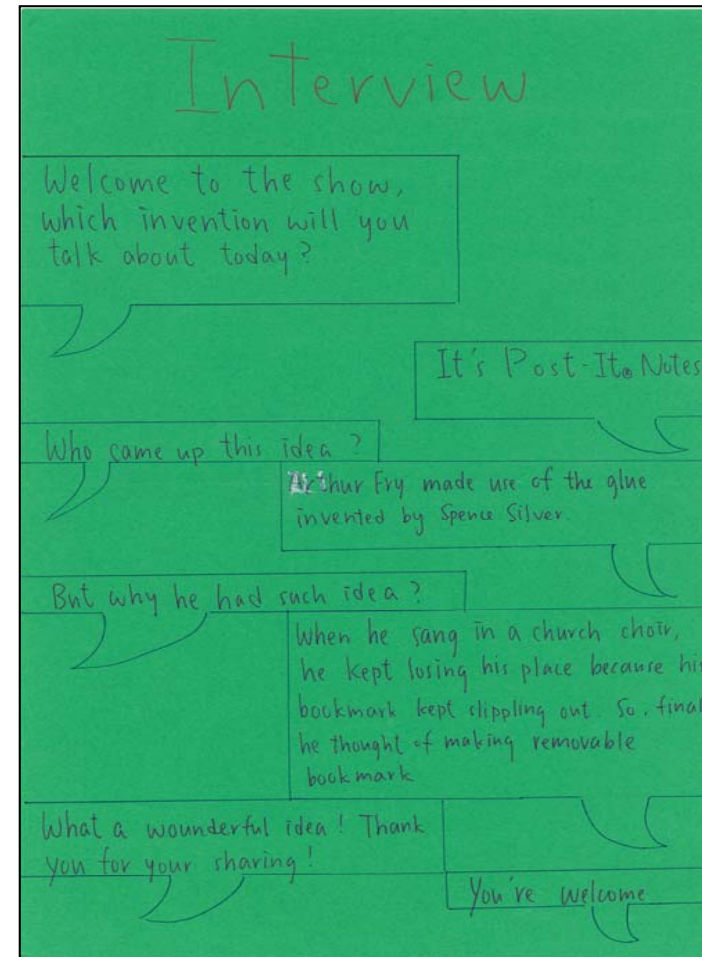 Interview
Welcome to the show,
which invention will you
talk about today?
It's Post-It® Notes
Who came up this idea?
Arthur Fry made use of the glue
invented by Spence Silver.
But why he had such idea?
When he sang in a church choir,
he kept losing his place because his
bookmark kept slippling out. So, final
he thought of making removable
bookmark
What a wounderful idea! Thank
you for your sharing!
You're welcome